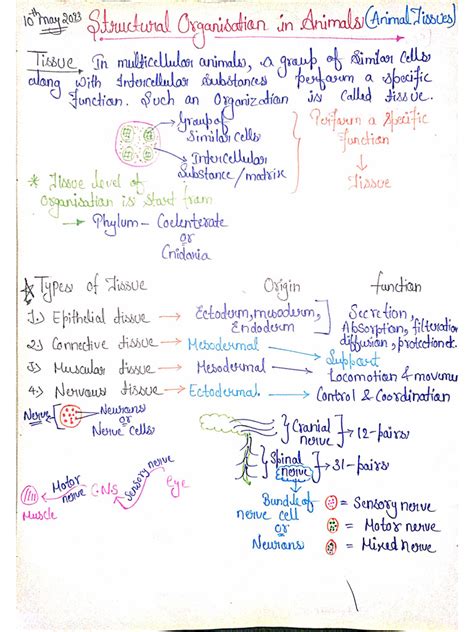 10th May 2023
Structural Organisation in Animals (Animal Tissues)
Tissue, In multicellular animals, a group of Similar Cells
along with Intercellular Substances perform a specific
function. Such an Organization is Called tissue.
Group of
Similar cells
Intercellular
Substance/matrix
Perform a Specific
function
Tissue
* Tissue level of
Organisation is start from
Phylum - Coelenterate
or
Cnidaria
Types of Tissue Origin function
1.) Epithelial tissue → Ectoderm, mesoderm, Endoderm Secretion, Absorption, filteration, diffusion, protection etc.
2.) Connective tissue → Mesodermal → Support
3.) Muscular tissue → Mesodermal → Locomotion & movem
4.) Nervous tissue → Ectodermal → Control & Coordination
Nerve
Neurans
or
Nerve Cells
Cranial
nerve → 12-pairs
Spinal
nerve → 31-pairs
Motor
nerve
CNS
Sensory nerve
Eye
Muscle
Bundle of
nerve cell
or
Neurans
= Sensory nerve
= Motor nerve
= Mixed Nerve